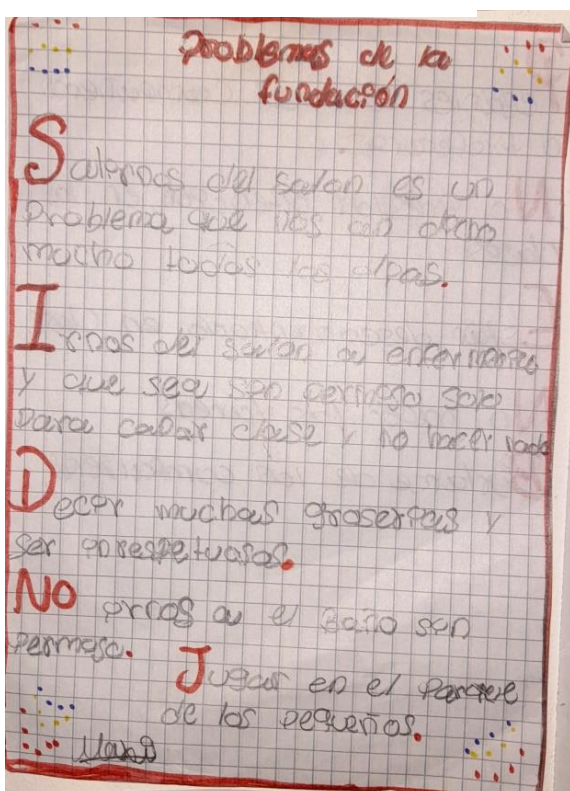 Problemas de la
fundación
Salirnos del salon es un
problema que nos an dicho
mucho todos los dias.
Irnos del salon a enfermeria
y que sea sen permeso solo
para capar clase y no hacer nada
Decer muchas groserias y
ser enrespetuosos.
NO ernos a el baño sen
permeso. Jugar en el parque
de los pequeños.